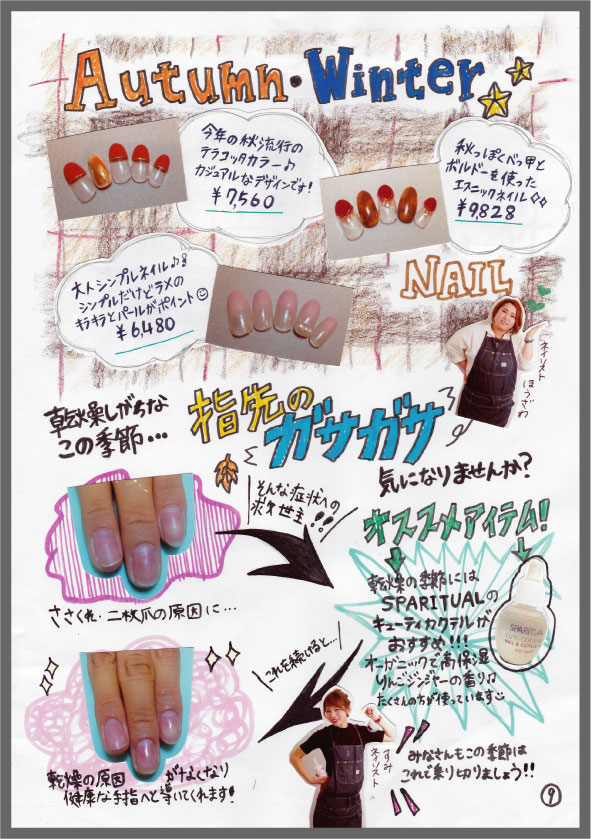 Autumn・Winter
今年の秋流行の
テラコッタカラー♪
カジュアルなデザインです!
¥7,560
秋っぽくべっ甲と
ボルドーを使った
エスニックネイル◇◇
¥9,828
大人シンプルネイル♪
シンプルだけどラメの
キラキラとパールがポイント☺
¥6,480
NAIL
ネイリスト
ほうざわ
乾燥しがちな
この季節…
指先の
ガサガサ
気になりませんか?
そんな症状への
救世主!!
オススメアイテム!
ささくれ・二枚爪の原因に…
乾燥の季節には
SPARITUALの
キューティカクテルが
おすすめ!!!
オーガニックで高保湿
りんごジンジャーの香り♫
たくさんの方が使っています☺
SPARITUAL
これを続けると…
ネイリスト
すみ
乾燥の原因がなくなり
健康な手指へと導いてくれます!
みなさんもこの季節は
これで乗り切りましょう!!
9